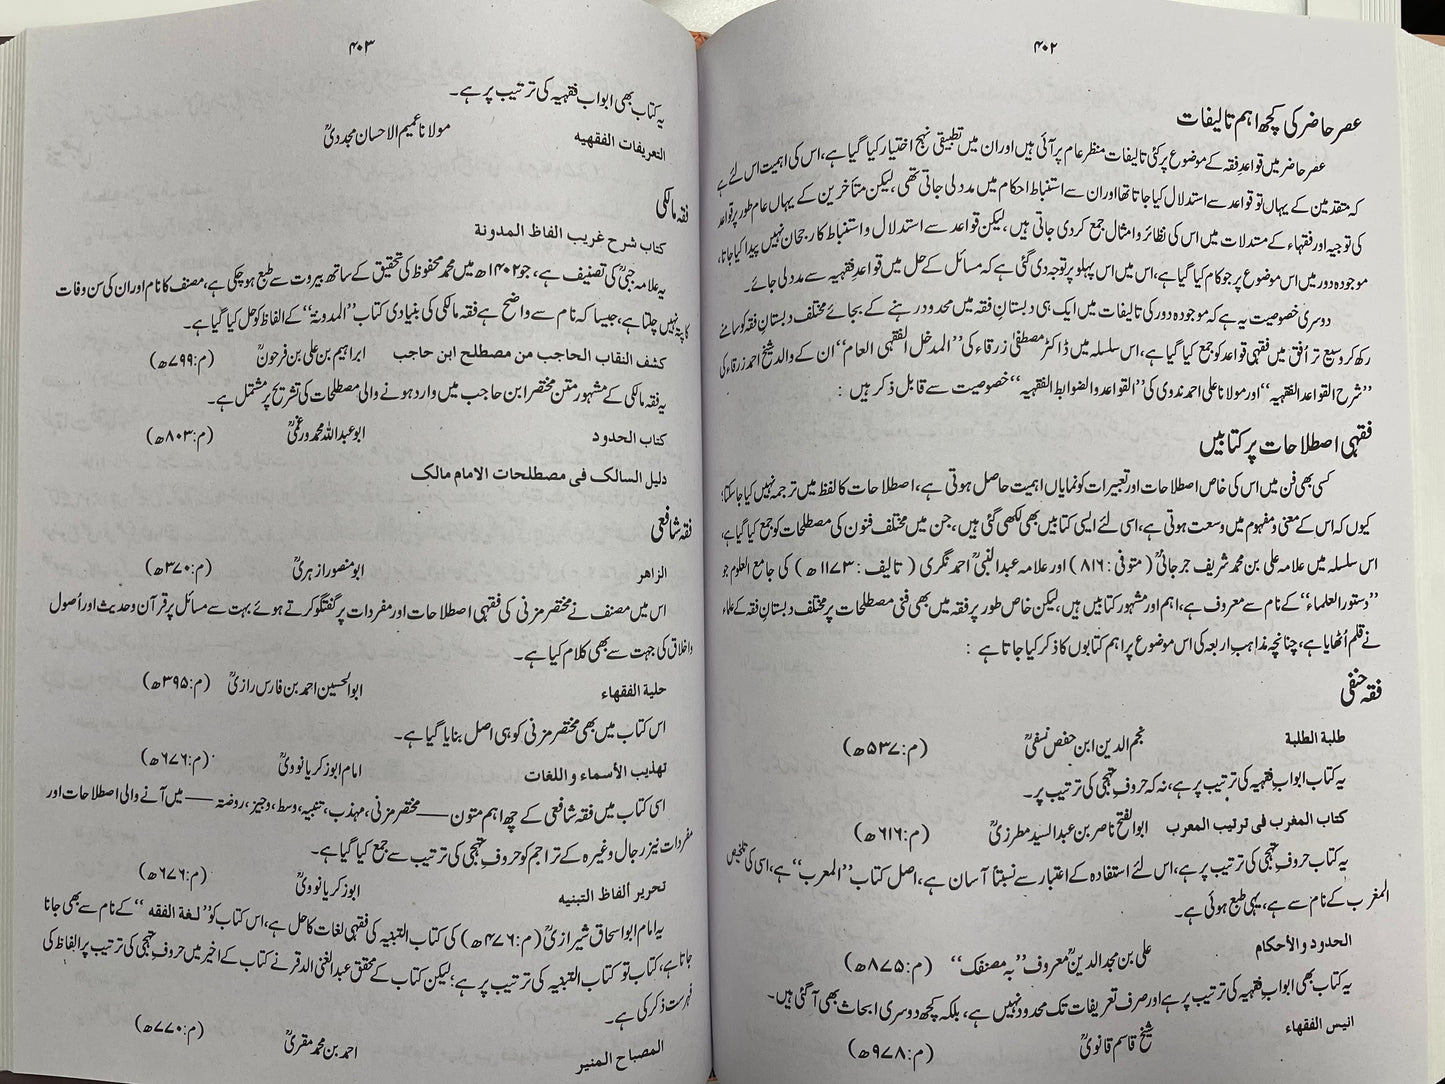 ۴۰۲
عصر حاضر کی کچھ اہم تالیفات
عصر حاضر میں قواعدِ فقہ کے موضوع پر کئی تالیفات منظر عام پر آئی ہیں اور ان میں تطبیقی نہج اختیار کیا گیا ہے، اس کی اہمیت اس لئے ہے
کہ متقدمین کے یہاں تو قواعد سے استدلال کیا جاتا تھا اور ان سے استنباط احکام میں مدد لی جاتی تھی، لیکن متأخرین کے یہاں عام طور پر قواعد
کی توجیہ اور فقہاء کے مستدلات میں اس کی نظائر و امثال جمع کردی جاتی ہیں، لیکن قواعد سے استدلال و استنباط کا رجحان نہیں پیدا کیا جاتا،
موجودہ دور میں اس موضوع پر جو کام کیا گیا ہے، اس میں اس پہلو پر توجہ دی گئی ہے کہ مسائل کے حل میں قواعدِ فقہیہ سے مدد لی جائے۔
دوسری خصوصیت یہ ہے کہ موجودہ دور کی تالیفات میں ایک ہی دبستانِ فقہ میں محدود رہنے کے بجائے مختلف دبستانِ فقہ کو سامنے
رکھ کر وسیع تر اُفق میں فقہی قواعد کو جمع کیا گیا ہے، اس سلسلہ میں ڈاکٹر مصطفیٰ زرقاء کی ”المدخل الفقهی العام“ ان کے والد شیخ احمد زرقاء کی
”شرح القواعد الفقهیه“ اور مولانا علی احمد ندوی کی ”القواعد والضوابط الفقهیه“ خصوصیت سے قابل ذکر ہیں :
فقہی اصطلاحات پر کتابیں
کسی بھی فن میں اس کی خاص اصطلاحات اور تعبیرات کو نمایاں اہمیت حاصل ہوتی ہے، اصطلاحات کا لفظ میں ترجمہ نہیں کیا جا سکتا؛
کیوں کہ اس کے معنی و مفہوم میں وسعت ہوتی ہے، اسی لئے ایسی کتابیں بھی لکھی گئی ہیں، جن میں مختلف فنون کی مصطلحات کو جمع کیا گیا ہے،
اس سلسلہ میں علامہ علی بن محمد شریف جرجانیؒ (متوفی: ۸۱۶) اور علامہ عبدالنبیؒ احمد نگری (تالیف: ۱۱۷۳ھ) کی جامع العلوم جو
”دستور العلماء“ کے نام سے معروف ہے، اہم اور مشہور کتابیں ہیں، لیکن خاص طور پر فقہ میں بھی فنی مصطلحات پر مختلف دبستانِ فقہ کے علماء
نے قلم اُٹھایا ہے، چنانچہ مذاہب اربعہ کی اس موضوع پر اہم کتابوں کا ذکر کیا جاتا ہے :
فقہ حنفی
طلبة الطلبة نجم الدین ابن حفص نسفیؒ (م: ۵۳۷ھ)
یہ کتاب ابوابِ فقہیہ کی ترتیب پر ہے، نہ کہ حروفِ تہجی کی ترتیب پر۔
کتاب المغرب فی ترتیب المعرب ابوالفتح ناصر بن عبدالسید مطرزیؒ (م: ۶۱۶ھ)
یہ کتاب حروفِ تہجی کی ترتیب پر ہے، اس لئے استفادہ کے اعتبار سے نسبتاً آسان ہے، اصل کتاب ”المعرب“ ہے، اسی کی تلخیص
المغرب کے نام سے ہے، یہی طبع ہوئی ہے۔
الحدود والأحکام علی بن مجدالدینؒ معروف ”بہ مصنفک“ (م: ۸۷۵ھ)
یہ کتاب بھی ابوابِ فقہیہ کی ترتیب پر ہے اور صرف تعریفات تک محدود نہیں ہے، بلکہ کچھ دوسری ابحاث بھی آگئی ہیں۔
انیس الفقهاء شیخ قاسم قانویؒ (م: ۹۷۸ھ)
۴۰۳
یہ کتاب بھی ابواب فقہیہ کی ترتیب پر ہے۔
التعریفات الفقهیه مولانا عمیم الاحسان مجددیؒ
فقہ مالکی
کتاب شرح غریب الفاظ المدونة
یہ علامہ جبیؒ کی تصنیف ہے، جو ۱۴۰۲ھ میں محمد محفوظ کی تحقیق کے ساتھ بیروت سے طبع ہو چکی ہے، مصنف کا نام اور ان کی سن وفات
کا پتہ نہیں چلتا ہے، جیسا کہ نام سے واضح ہے فقہ مالکی کی بنیادی کتاب ”المدونة“ کے الفاظ کو حل کیا گیا ہے۔
کشف النقاب الحاجب من مصطلح ابن حاجب ابراہیم بن علی بن فرحونؒ (م: ۷۹۹ھ)
یہ فقہ مالکی کے مشہور متن مختصر ابن حاجب میں وارد ہونے والی مصطلحات کی تشریح پر مشتمل ہے۔
کتاب الحدود ابو عبداللہ محمد ورغمیؒ (م: ۸۰۳ھ)
دلیل السالک فی مصطلحات الامام مالک
فقہ شافعی
الزاهر ابو منصور ازہریؒ (م: ۳۷۰ھ)
اس میں مصنف نے مختصر مزنی کی فقہی اصطلاحات اور مفردات پر گفتگو کرتے ہوئے بہت سے مسائل پر قرآن و حدیث اور اُصول
و اخلاق کی جہت سے بھی کلام کیا ہے۔
حلیة الفقهاء ابوالحسین احمد بن فارس رازیؒ (م: ۳۹۵ھ)
اس کتاب میں بھی مختصر مزنی کو ہی اصل بنایا گیا ہے۔
تهذیب الأسماء و اللغات امام ابوزکریا نوویؒ (م: ۶۷۶ھ)
اسی کتاب میں فقہ شافعی کے چھ اہم متون — مختصر مزنی، مہذب، تنبیہ، وسط، وجیز، روضتہ — میں آنے والی اصطلاحات اور
مفردات نیز رجال وغیرہ کے تراجم کو حروفِ تہجی کی ترتیب سے جمع کیا گیا ہے۔
تحریر الفاظ التنبیه ابوزکریا نوویؒ (م: ۶۷۶ھ)
یہ امام ابواسحاق شیرازیؒ (م: ۴۷۶ھ) کی کتاب التنبیہ کی فقہی لغات کا حل ہے، اس کتاب کو ”لغة الفقه“ کے نام سے بھی جانا
جاتا ہے، کتاب تو کتاب التنبیہ کی ترتیب پر ہے؛ لیکن کتاب کے محقق عبدالغنی الدقر نے کتاب کے اخیر میں حروفِ تہجی کی ترتیب پر الفاظ کی
فہرست ذکر کی ہے۔
المصباح المنیر احمد بن محمد مقریؒ (م: ۷۷۰ھ)